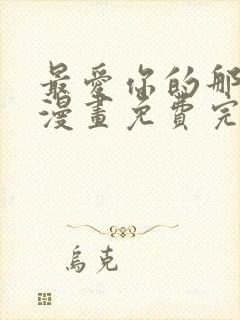 最愛你的那
漫畫免費完
烏克